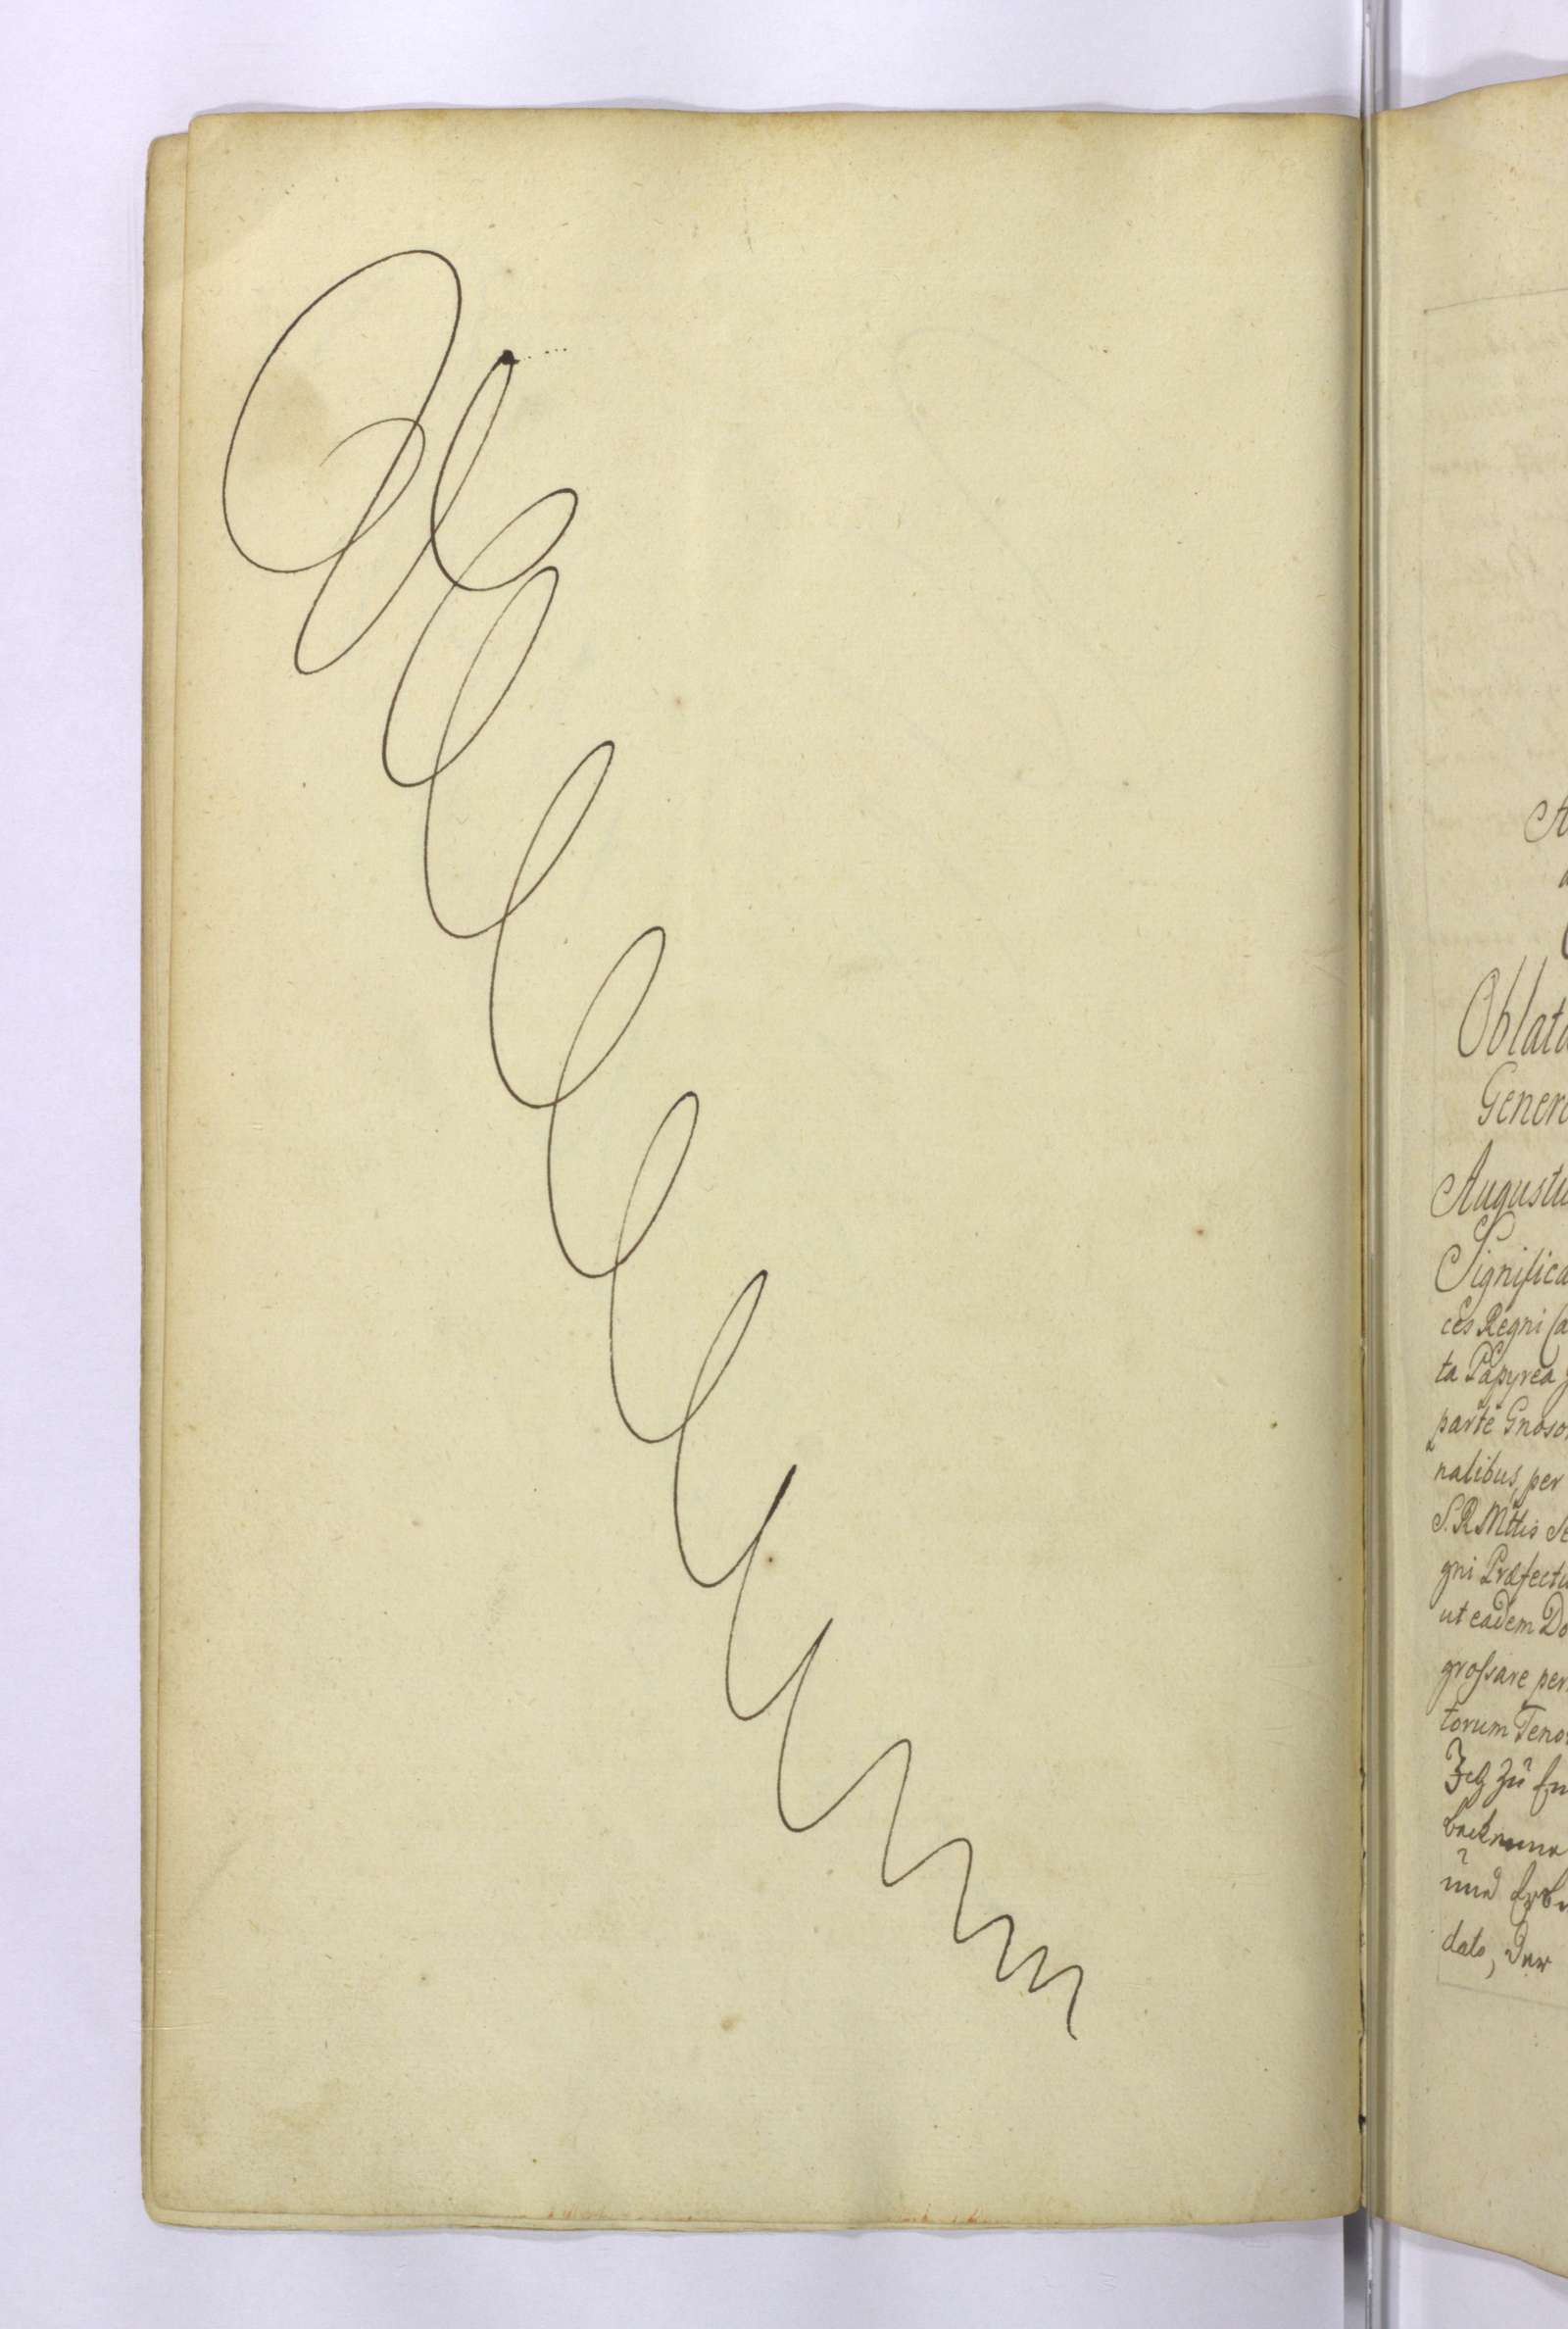 Oblat
Gener
August
Significa
ces Regni
ta Papyrea
parte Gnoso
nalibus, per
S. R. Mttis Se
gni Præfectu
ut eadem Do
groſsare per
torum Teno
und Erb
dato, Der